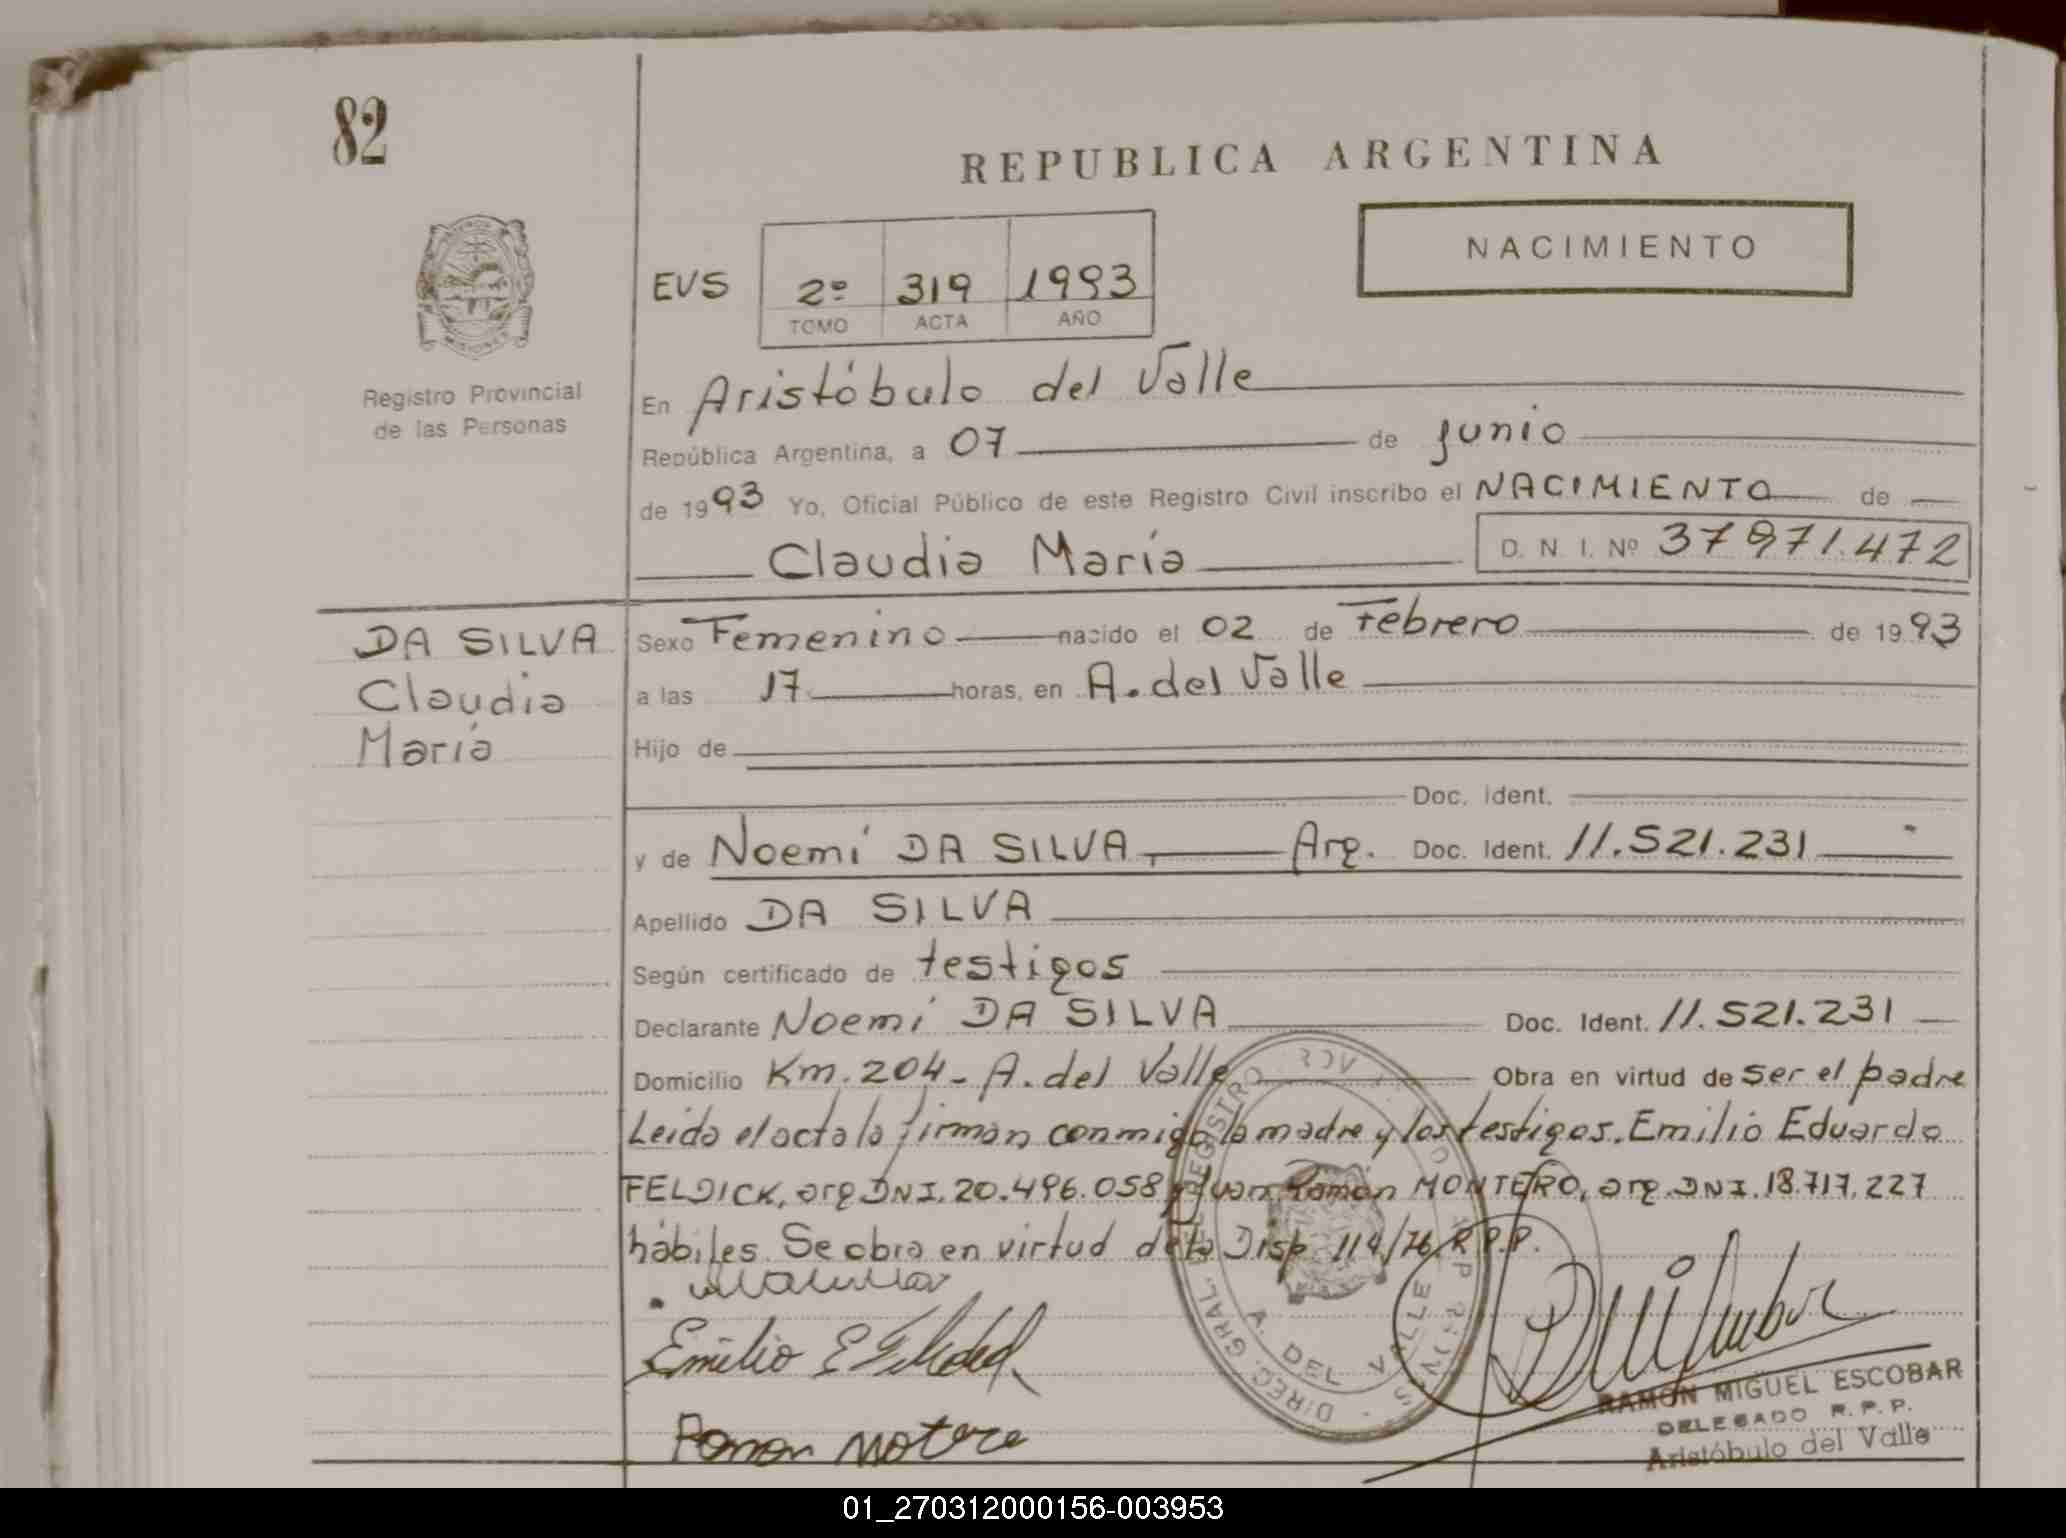 82
REPUBLICA ARGENTINA
NACIMIENTO
EVS 2º 319 1993
TOMO ACTA AÑO
MISIONES
Registro Provincial
de las Personas
En Aristóbulo del Valle
República Argentina, a 07 de junio
de 1993 Yo, Oficial Público de este Registro Civil inscribo el NACIMIENTO de
Claudia María D. N. I. Nº 37971.472
DA SILVA
Claudia
María
Sexo Femenino nacido el 02 de Febrero de 1993
a las 17 horas, en A. del Valle
Hijo de
Doc. Ident.
y de Noemí DA SILVA, Arg. Doc. Ident. 11.521.231
Apellido DA SILVA
Según certificado de testigos
Declarante Noemí DA SILVA Doc. Ident. 11.521.231
Domicilio Km. 204 - A. del Valle Obra en virtud de ser el padre
Leida el acta la firman conmigo la madre y los testigos. Emilio Eduardo
FELDICK, arg DNI. 20.496.058 y Juan Ramón MONTERO, arg. DNI. 18.717.227
hábiles. Se obra en virtud de la Disp 114/76 R.P.P.
Emilio E
Ramon
DIREC. GRAL. DEL REGISTRO
A. DEL VALLE
RAMON MIGUEL ESCOBAR
DELEGADO R. P. P.
Aristóbulo del Valle
01_270312000156-003953